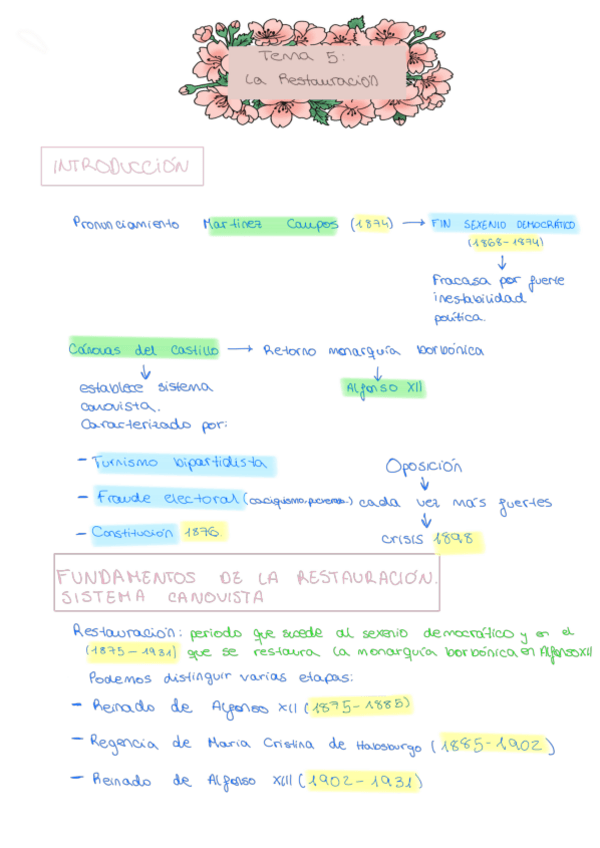 Tema 5:
La Restauración
INTRODUCCIÓN
Pronunciamiento Martínez Campos (1874) → FIN SEXENIO DEMOCRÁTICO
(1868-1874)
↓
Fracasa por fuerte
inestabilidad
política.
Cánovas del Castillo → Retorno monarquía borbónica
↓ ↓
establece sistema Alfonso XII
canovista.
Caracterizado por:
- Turnismo bipartidista
Oposición
↓
- Fraude electoral (caciquismo, ) cada vez más fuertes
↓
- Constitución 1876.
crisis 1898
FUNDAMENTOS DE LA RESTAURACIÓN.
SISTEMA CANOVISTA
Restauración: periodo que sucede al sexenio democrático y en el
(1875-1931) que se restaura la monarquía borbónica en Alfonso XII
Podemos distinguir varias etapas:
- Reinado de Alfonso XII (1875-1885)
- Regencia de María Cristina de Habsburgo (1885-1902)
- Reinado de Alfonso XIII (1902-1931)